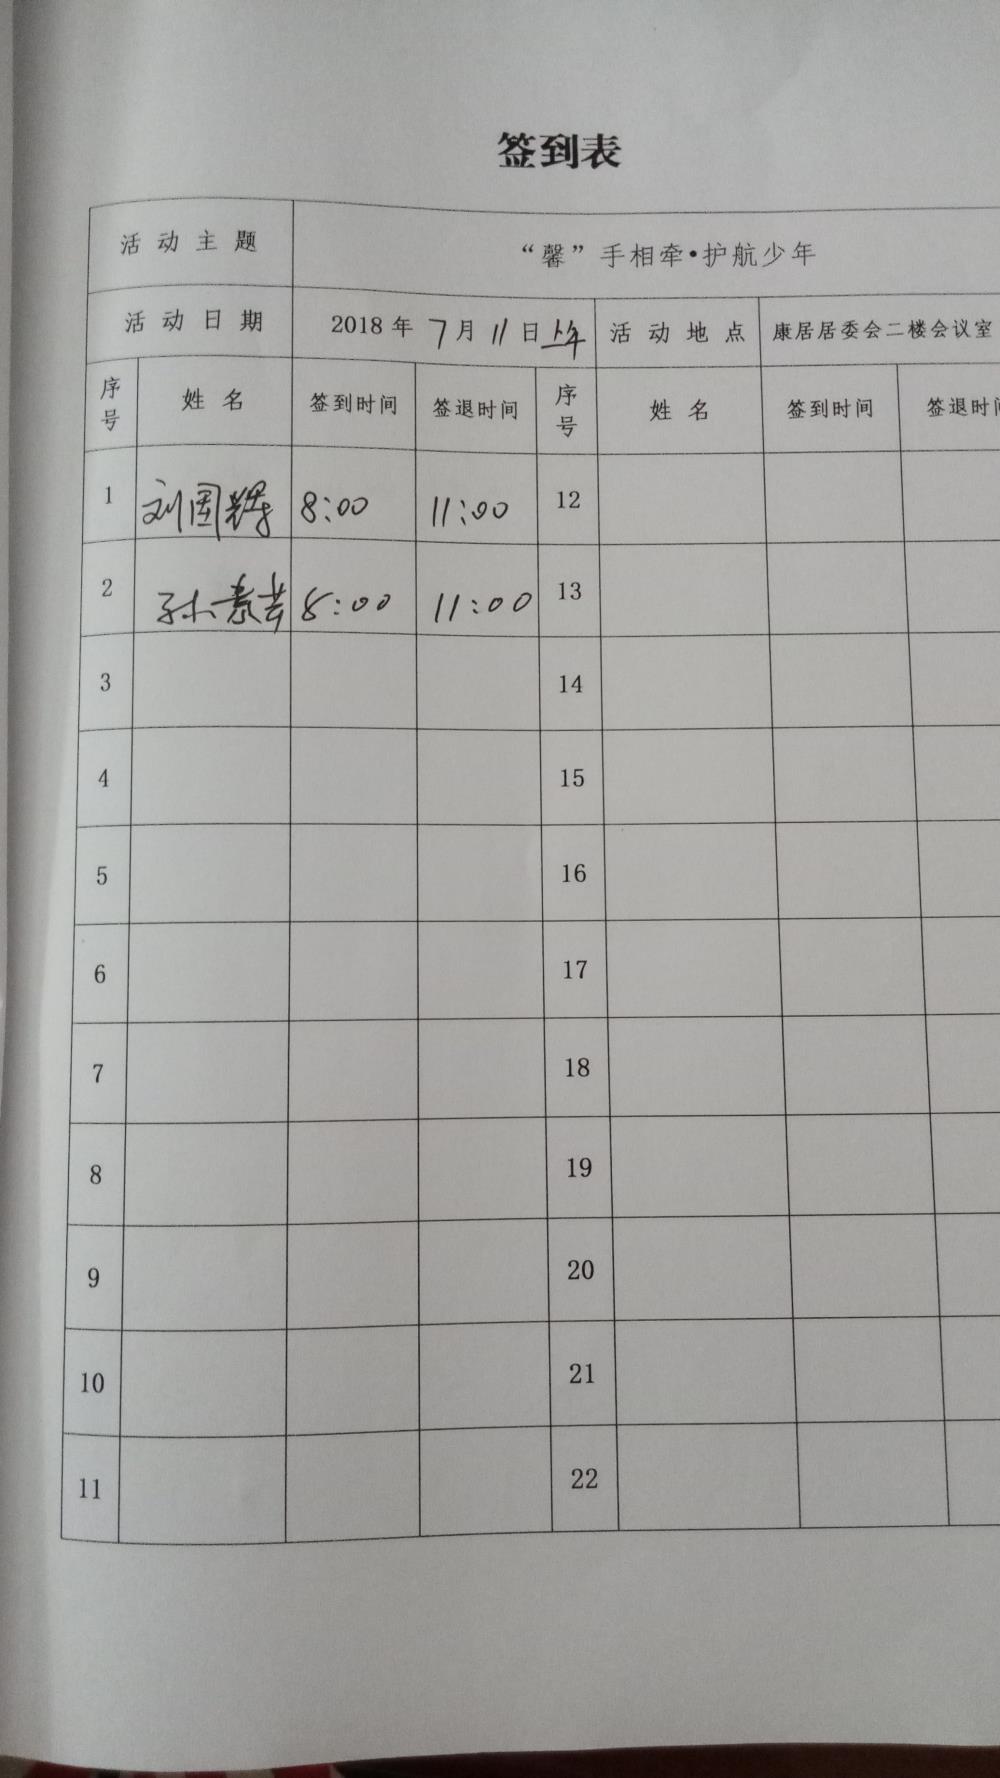 签到表
活动主题 “馨”手相牵•护航少年
活动日期 2018年7月11日上午 活动地点 康居居委会二楼会议室
序号 姓名 签到时间 签退时间 序号 姓名 签到时间 签退时
1 刘国辉 8:00 11:00 12
2 孙 8:00 11:00 13
3 14
4 15
5 16
6 17
7 18
8 19
9 20
10 21
11 22